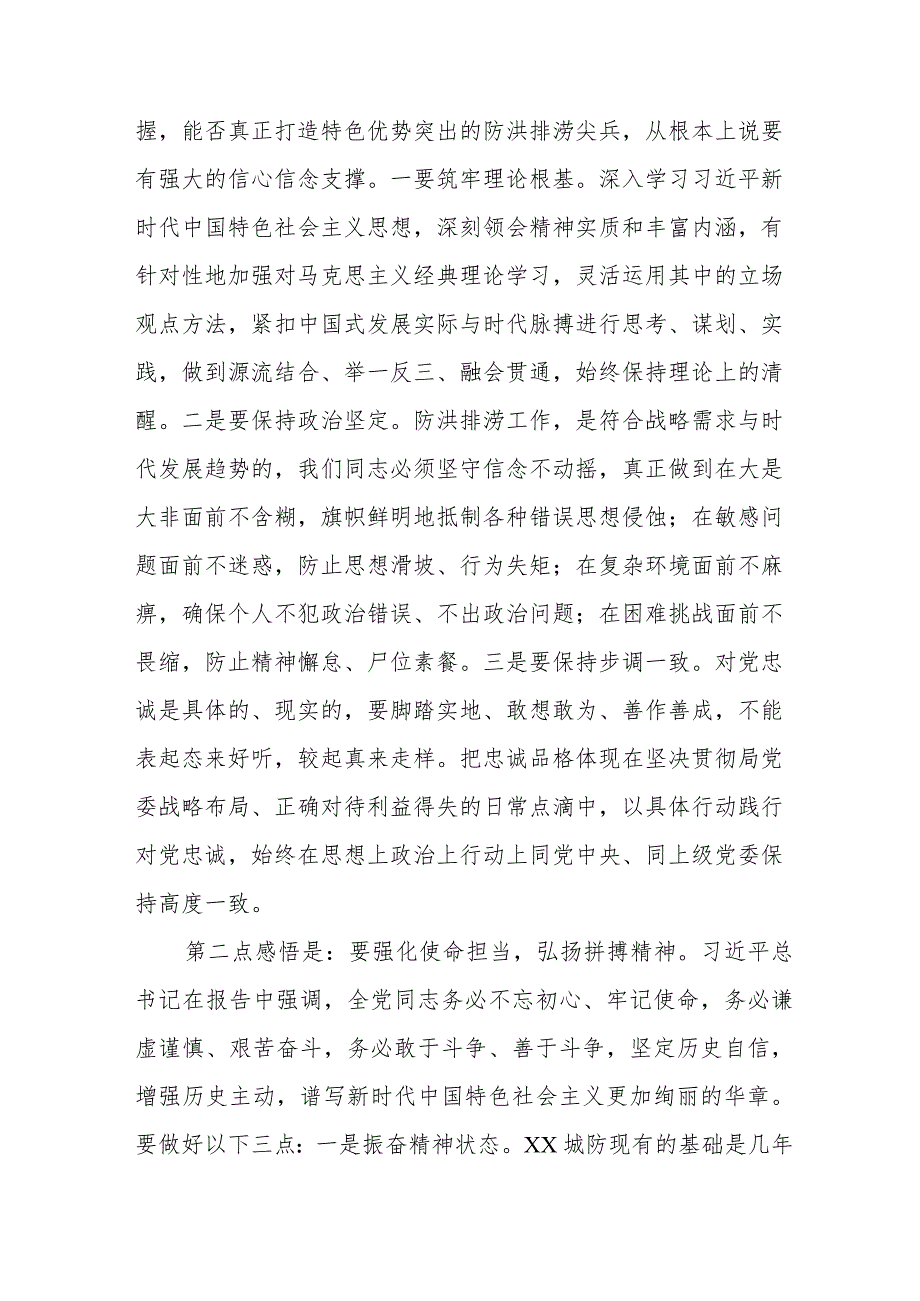 握，能否真正打造特色优势突出的防洪排涝尖兵，从根本上说要
有强大的信心信念支撑。一要筑牢理论根基。深入学习习近平新
时代中国特色社会主义思想，深刻领会精神实质和丰富内涵，有
针对性地加强对马克思主义经典理论学习，灵活运用其中的立场
观点方法，紧扣中国式发展实际与时代脉搏进行思考、谋划、实
践，做到源流结合、举一反三、融会贯通，始终保持理论上的清
醒。二是要保持政治坚定。防洪排涝工作，是符合战略需求与时
代发展趋势的，我们同志必须坚守信念不动摇，真正做到在大是
大非面前不含糊，旗帜鲜明地抵制各种错误思想侵蚀；在敏感问
题面前不迷惑，防止思想滑坡、行为失矩；在复杂环境面前不麻
痹，确保个人不犯政治错误、不出政治问题；在困难挑战面前不
畏缩，防止精神懈怠、尸位素餐。三是要保持步调一致。对党忠
诚是具体的、现实的，要脚踏实地、敢想敢为、善作善成，不能
表起态来好听，较起真来走样。把忠诚品格体现在坚决贯彻局党
委战略布局、正确对待利益得失的日常点滴中，以具体行动践行
对党忠诚，始终在思想上政治上行动上同党中央、同上级党委保
持高度一致。
第二点感悟是：要强化使命担当，弘扬拼搏精神。习近平总
书记在报告中强调，全党同志务必不忘初心、牢记使命，务必谦
虚谨慎、艰苦奋斗，务必敢于斗争、善于斗争，坚定历史自信，
增强历史主动，谱写新时代中国特色社会主义更加绚丽的华章。
要做好以下三点：一是振奋精神状态。XX 城防现有的基础是几年